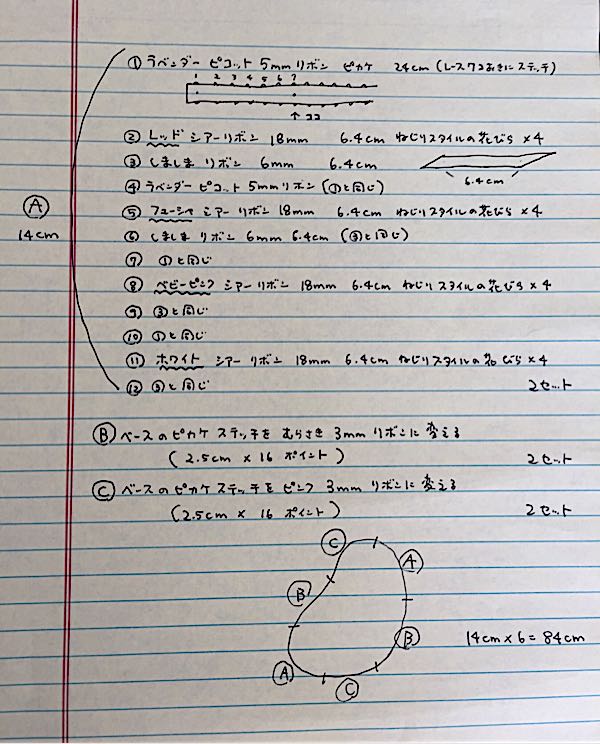 ① ラベンダー ピコット 5mm リボン ピカケ 24cm (レース7コおきにステッチ)
1 2 3 4 5 6 7
↑ココ
② レッド シアーリボン 18mm 6.4cm ねじりスタイルの花びら ×4
③ しましま リボン 6mm 6.4cm
6.4cm
④ ラベンダー ピコット 5mm リボン (①と同じ)
Ⓐ
14cm
⑤ フューシャ シアー リボン 18mm 6.4cm ねじりスタイルの花びら ×4
⑥ しましま リボン 6mm 6.4cm (③と同じ)
⑦ ①と同じ
⑧ ベビーピンク シアー リボン 18mm 6.4cm ねじりスタイルの花びら ×4
⑨ ③と同じ
⑩ ①と同じ
⑪ ホワイト シアー リボン 18mm 6.4cm ねじりスタイルの花びら ×4
⑫ ③と同じ 2セット
Ⓑ ベースのピカケ ステッチを むらさき 3mm リボンに変える
(2.5cm × 16 ポイント) 2セット
Ⓒ ベースのピカケ ステッチを ピンク 3mm リボンに変える
(2.5cm × 16 ポイント) 2セット
Ⓒ
Ⓐ
Ⓑ
Ⓑ 14cm×6=84cm
Ⓐ
Ⓒ